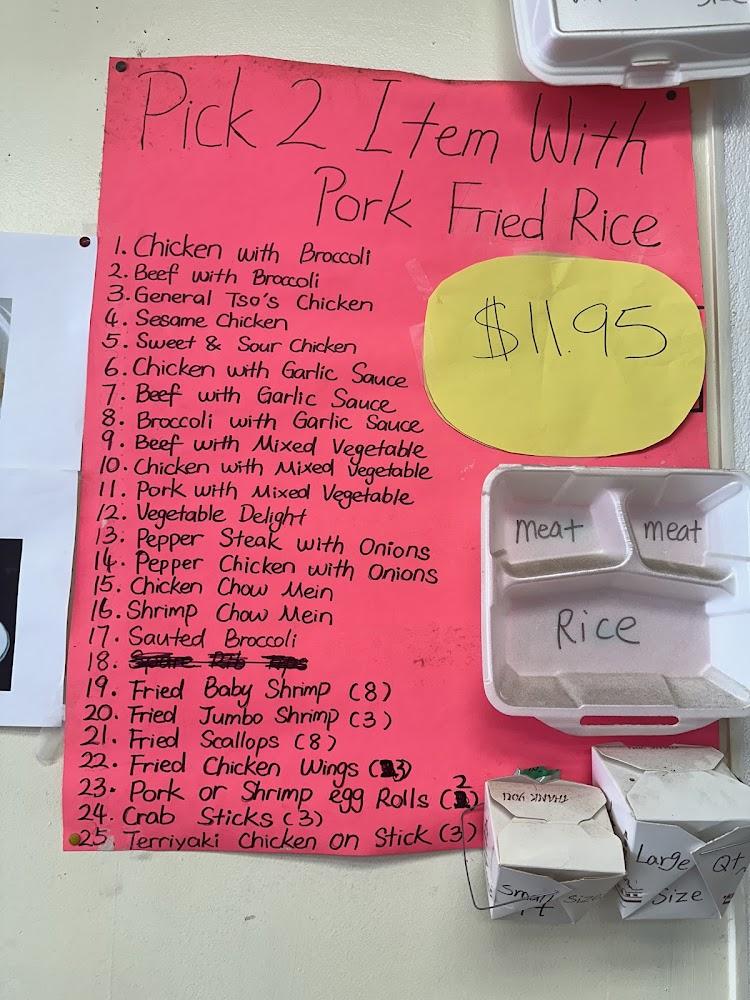 Pick 2 Item With
Pork Fried Rice
$11.95
1. Chicken with Broccoli
2. Beef with Broccoli
3. General Tso's Chicken
4. Sesame Chicken
5. Sweet & Sour Chicken
6. Chicken with Garlic Sauce
7. Beef with Garlic Sauce
8. Broccoli with Garlic Sauce
9. Beef with Mixed Vegetable
10. Chicken with Mixed Vegetable
11. Pork with Mixed Vegetable
12. Vegetable Delight
13. Pepper Steak with Onions
14. Pepper Chicken with Onions
15. Chicken Chow Mein
16. Shrimp Chow Mein
17. Sauted Broccoli
18. Spare Rib Tips
19. Fried Baby Shrimp (8)
20. Fried Jumbo Shrimp (3)
21. Fried Scallops (8)
22. Fried Chicken Wings (3)
23. Pork or Shrimp egg Rolls (2)
24. Crab Sticks (3)
25. Terriyaki Chicken on Stick (3)
meat meat
Rice
THANK YOU
Small size
Large Qt.
Size